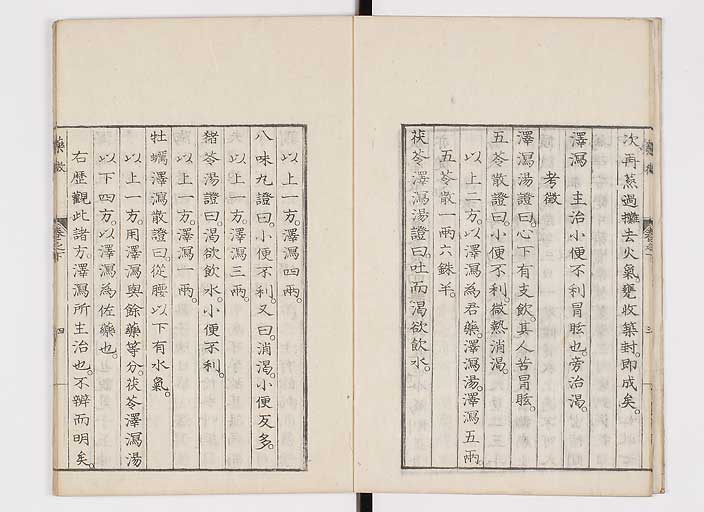 次再蒸過攤去火氣。甕收築封。即成矣。
澤瀉 主治小便不利冒眩也。旁治渴。
考徵
澤瀉湯證曰。心下有支飲。其人苦冒眩。
五苓散證曰。小便不利。微熱消渴。
以上二方。以澤瀉為君藥。澤瀉湯。澤瀉五兩。
五苓散一兩六銖半。
茯苓澤瀉湯證曰。吐而渴欲飲水。
以上一方。澤瀉四兩。
八味丸證曰。小便不利。又曰。消渴。小便反多。
以上一方。澤瀉三兩。
猪苓湯證曰。渴欲飲水。小便不利。
以上一方。澤瀉一兩。
牡蠣澤瀉散證曰。從腰以下有水氣。
以上一方。用澤瀉與餘藥等分。茯苓澤瀉湯
以下四方。以澤瀉為佐藥也。
右歷觀此諸方。澤瀉所主治也。不辨而明矣。
藥徵
卷之下
四